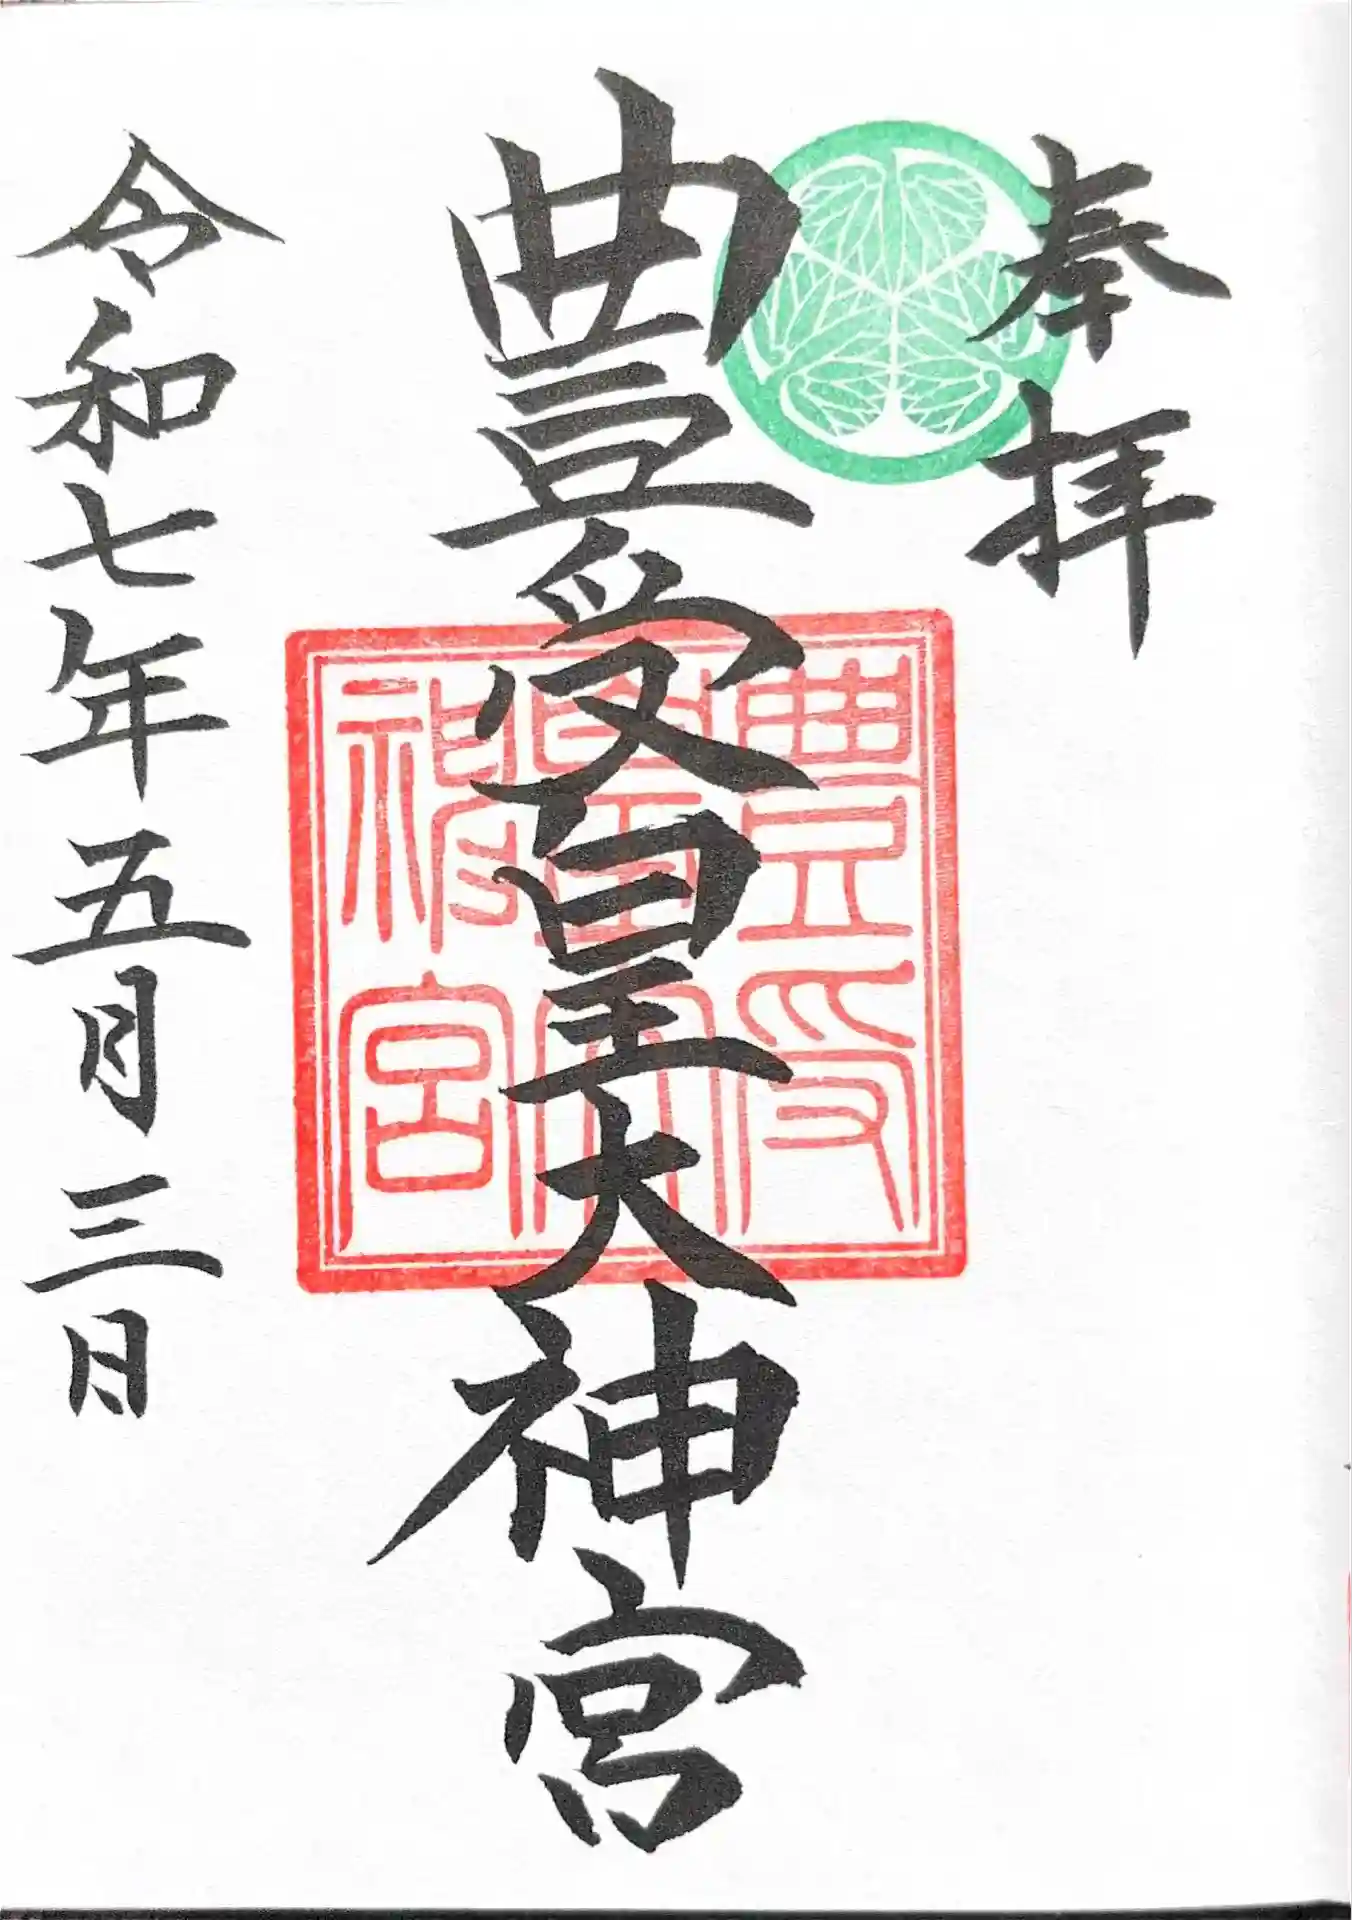 奉拝
豊受皇大神宮
豊受
皇大
神宮
令和七年五月三日